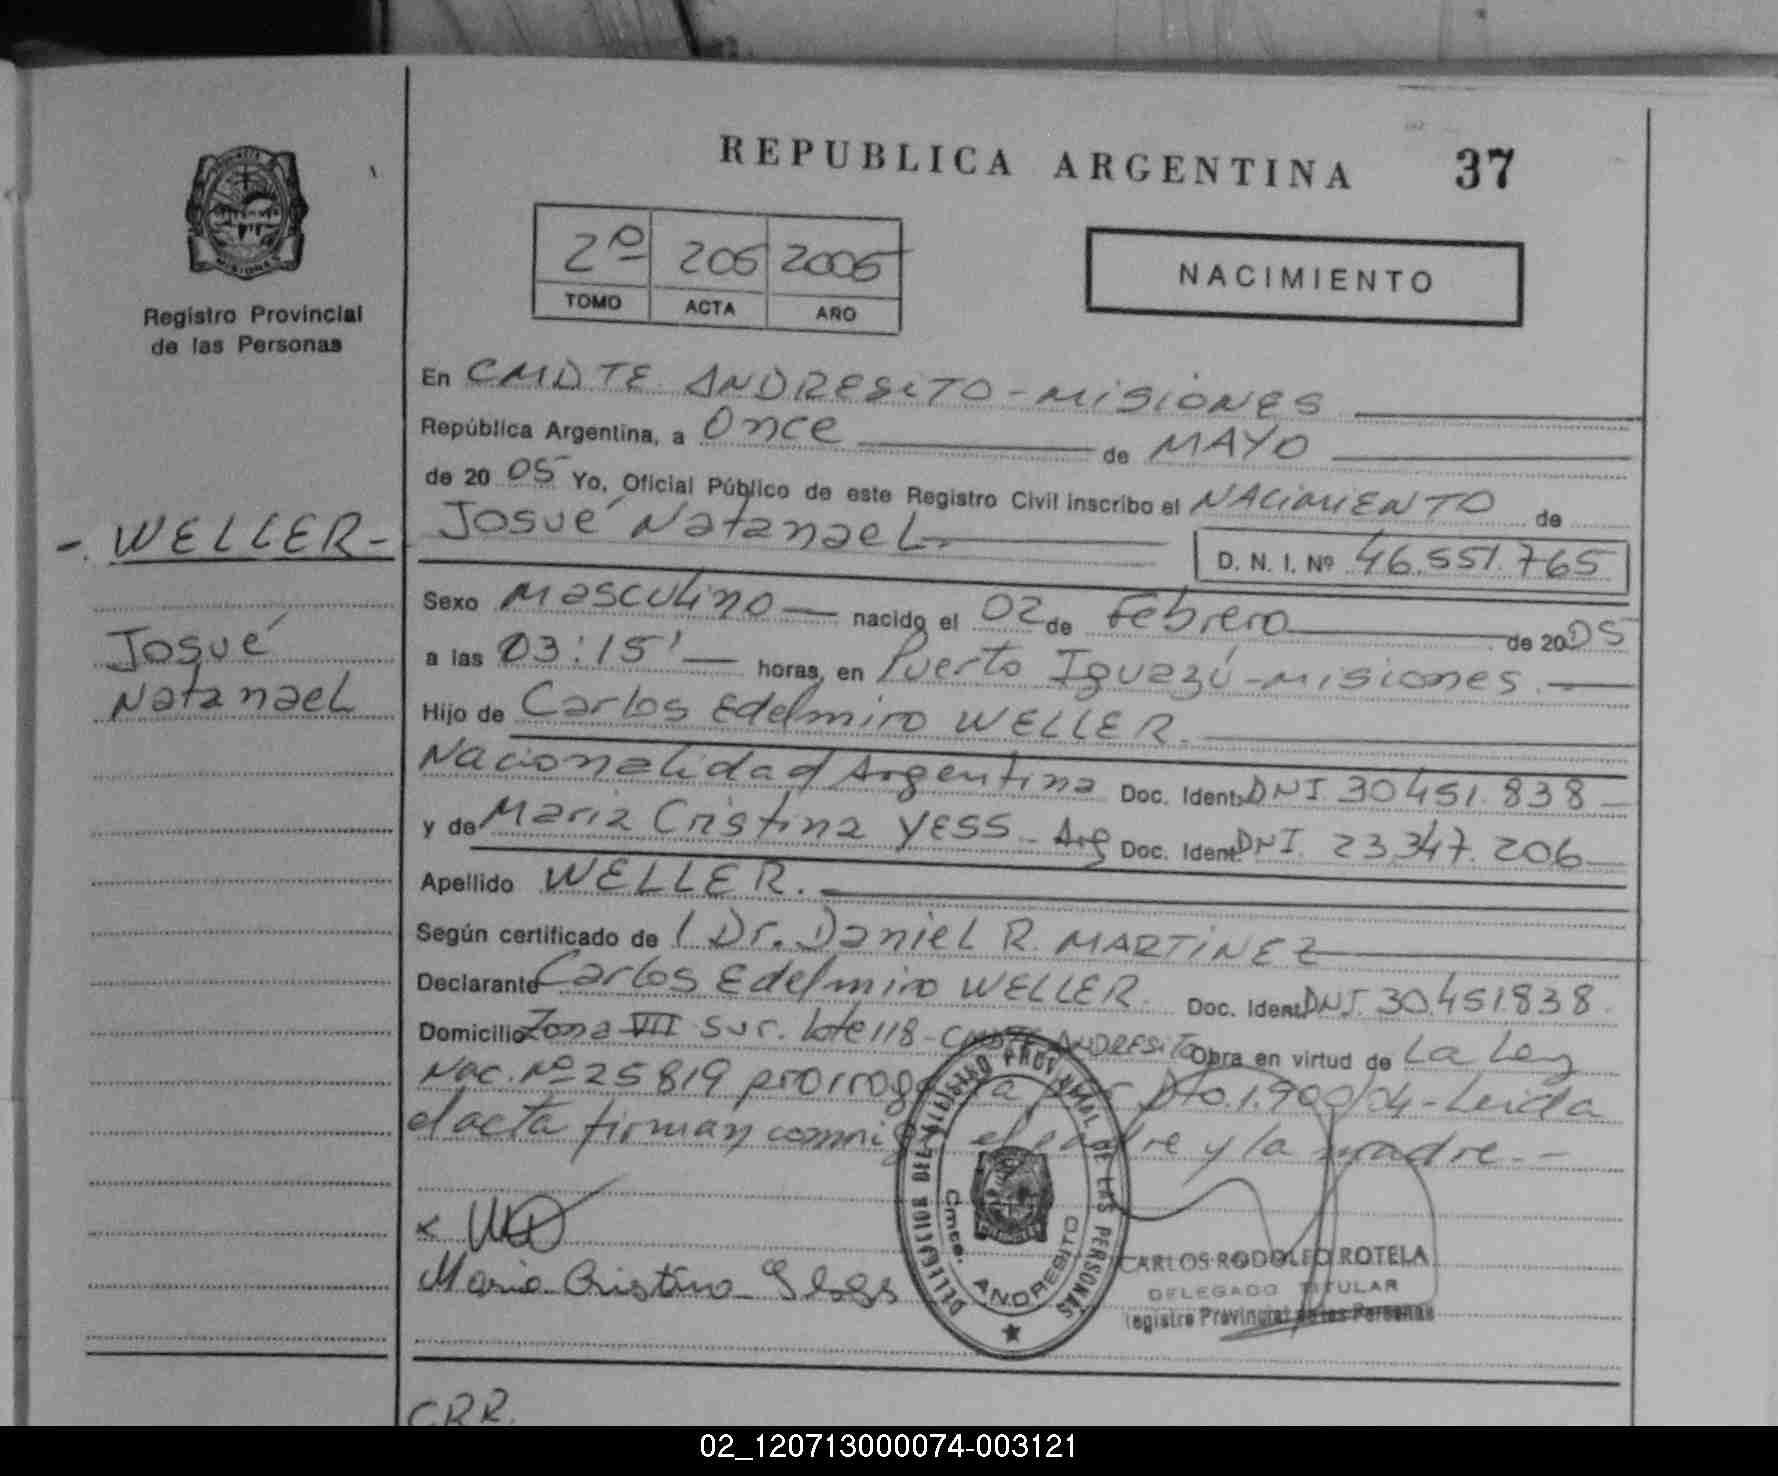 REPUBLICA ARGENTINA 37
2º 206 2005
TOMO ACTA AÑO
NACIMIENTO
MISIONES
Registro Provincial
de las Personas
- WELLER -
Josué
Natanael
En CMDTE ANDRESITO - MISIONES
República Argentina, a Once de MAYO
de 20 05 Yo, Oficial Público de este Registro Civil inscribo el NACIMIENTO de
Josué Natanael
D. N. I. Nº 46.551.765
Sexo Masculino nacido el 02 de Febrero de 20 05
a las 03:15' horas, en Puerto Iguazú - Misiones
Hijo de Carlos Edelmiro WELLER.
Nacionalidad Argentina Doc. Ident. DNI 30.451.838
y de Maria Cristina YESS - Arg Doc. Ident. DNI. 23.347.206
Apellido WELLER.
Según certificado de l Dr. Daniel R. MARTINEZ
Declarante Carlos Edelmiro WELLER. Doc. Ident. DNI. 30.451.838.
Domicilio Zona VII Sur. Lote 118 - CMDTE ANDRESITO Obra en virtud de La Ley
Nac. Nº 25819 prorrogada por Dto. 1.900/04 - Leida
el acta firman conmigo el padre y la madre. -
Maria Cristina
DELEGACION DEL REGISTRO PROVINCIAL DE LAS PERSONAS
Cmte. ANDRESITO
CARLOS RODOLFO ROTELA
DELEGADO TITULAR
Registro Provincial de las Personas
CRR.
02_120713000074-003121